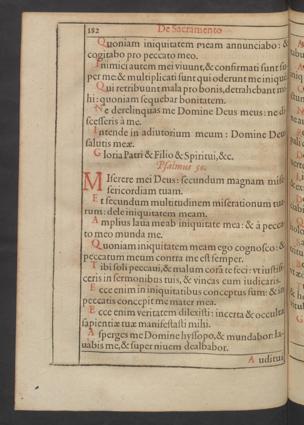 182 De Sacramento
Quoniam iniquitatem meam annunciabo: &
cogitabo pro peccato meo.
Inimici autem mei viuunt, & confirmati sunt su
per me & multiplicati sunt qui oderunt me inique
Qui retribuunt mala pro bonis, detrahebant mi-
hi: quoniam sequebar bonitatem.
Ne derelinquas me Domine Deus meus: ne di
scesseris à me.
Intende in adiutorium meum: Domine Deus
salutis meæ.
Gloria Patri & Filio & Spiritui, &c.
Psalmus 50.
MIserere mei Deus: secundum magnam mise
ricordiam tuam.
Et secundum multitudinem miserationum tua
rum: dele iniquitatem meam.
Amplius laua meab iniquitate mea: & à pecca
to meo munda me.
Quoniam iniquitatem meam ego cognosco: &
peccatum meum contra me est semper.
Tibi soli peccaui, & malum corā te feci: vt iustifi
ceris in sermonibus tuis, & vincas cum iudicaris.
Ecce enim in iniquitatibus conceptus sum: & in
peccatis concepit me mater mea.
Ecce enim veritatem dilexisti: incerta & occulta
sapientiæ tuæ manifestasti mihi.
Asperges me Domine hyssopo, & mundabor: la-
uabis me, & super niuem dealbabor.
Auditui